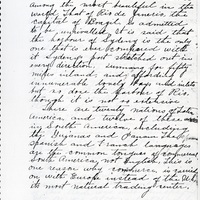 among the most beautiful in the
world, that of Rio de Janeiro, the
capital of Brazil is admitted
to be unrivalled. It is said that
the harbor of Sydney is the only
one that is ever compared with
it. Sydney's port stretches out in
every direction, running for fifty
miles inland, and affording
innumerable lovely bays and inlets
but so does the harbor of Rio,
though it is not so extensive.
There are twenty nations of Latin
America, and twelve of these are
in South America, including
the Guianas and Panama. The
Spanish and French languages
are the common tongues of commerce in
South America, not English. This is
one reason why commerce is carried
on with Europe instead of the U.S.,
its most natural trading center.